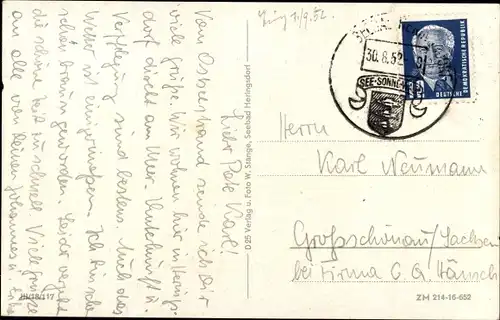 Eing. 1/9.52.
30.8.52
SEE·SONNE
DEUTSCHE
DEMOKRATISCHE REPUBLIK
Lieber Pate Karl!
Vom Ostseestrand sende ich Dir
viele Grüße. Wir wohnen hier in Herings-
dorf direkt am Meer. Unterkunft u.
Verpflegung sind bestens. Auch das
Wetter ist einigermaßen. Ich bin schon
schön braun geworden. Leider vergeht
die schöne Zeit zu schnell. Viele Grüße
an alle von Deinem Johannes u.
III/18/117
D 25 Verlag u. Foto W. Stange, Seebad Heringsdorf
Herrn
Karl Neumann
Großschönau/Sachsen
bei Firma C. G. Hänsch
ZM 214-16-652